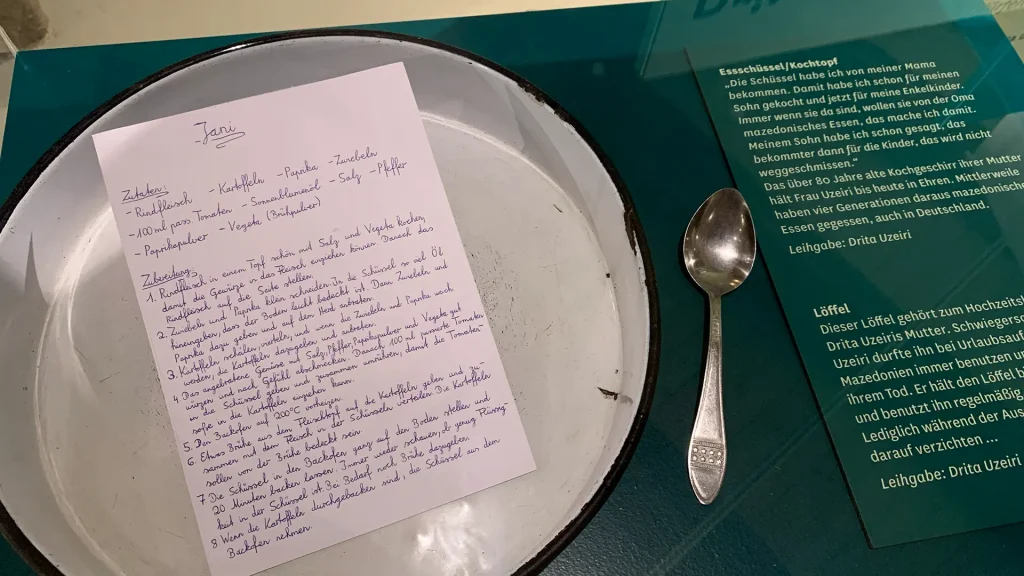 Jani
Zutaten:
- Rindfleisch - Kartoffeln - Paprika - Zwiebeln
- 100 ml pass. Tomaten - Sonnenblumenöl - Salz - Pfeffer
- Paprikapulver - Vegeta (Brühpulver)
Zubereitung:
1. Rindfleisch in einem Topf schön mit Salz und Vegeta kochen,
damit die Gewürze in das Fleisch einziehen können. Danach das
Rindfleisch auf die Seite stellen.
2. Zwiebeln und Paprika klein schneiden. In die Schüssel so viel Öl
hineingeben, dass der Boden leicht bedeckt ist. Dann Zwiebeln und
Paprika dazu geben und auf dem Herd anbraten.
3. Kartoffeln schälen, würfeln, und wenn die Zwiebeln und Paprika weich
werden, die Kartoffeln dazugeben und anbraten.
4. Das angebratene Gemüse mit Salz, Pfeffer, Paprikapulver und Vegeta gut
würzen und nach Gefühl abschmecken. Danach 100 ml passierte Tomaten
in die Schüssel geben und zusammen umrühren, damit die Tomaten-
soße in die Kartoffeln eingehen kann.
5. Den Backofen auf 200°C vorheizen.
6. Etwas Brühe aus dem Fleischtopf auf die Kartoffeln geben und zu-
sammen mit dem Fleisch in der Schüssel verteilen. Die Kartoffeln
sollen von der Brühe bedeckt sein.
7. Die Schüssel in den Backofen ganz auf den Boden stellen und
20 Minuten backen lassen. Immer wieder schauen, ob genug Flüssig-
keit in der Schüssel ist. Bei Bedarf noch Brühe dazugeben.
8. Wenn die Kartoffeln durchgebacken sind, die Schüssel aus dem
Backofen nehmen.
Essschüssel/Kochtopf
„Die Schüssel habe ich von meiner Mama
bekommen. Damit habe ich schon für meinen
Sohn gekocht und jetzt für meine Enkelkinder.
Immer wenn sie da sind, wollen sie von der Oma
mazedonisches Essen, das mache ich damit.
Meinem Sohn habe ich schon gesagt, das
bekommter dann für die Kinder, das wird nicht
weggeschmissen.“
Das über 80 Jahre alte Kochgeschirr ihrer Mutter
hält Frau Uzeiri bis heute in Ehren. Mittlerweile
haben vier Generationen daraus mazedonische
Essen gegessen, auch in Deutschland.
Leihgabe: Drita Uzeiri
Löffel
Dieser Löffel gehört zum
Drita Uzeiris Mutter.
Uzeiri durfte ihn bei
Mazedonien immer benutzen
ihrem Tod. Er hält den Löffel
und benutzt ihn regelmäßig
Lediglich während der
darauf verzichten ...
Leihgabe: Drita Uzeiri